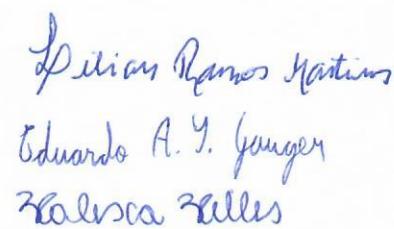 Lilian Ramos Martins
Eduardo A. Y. Yauger
Walesca Welles